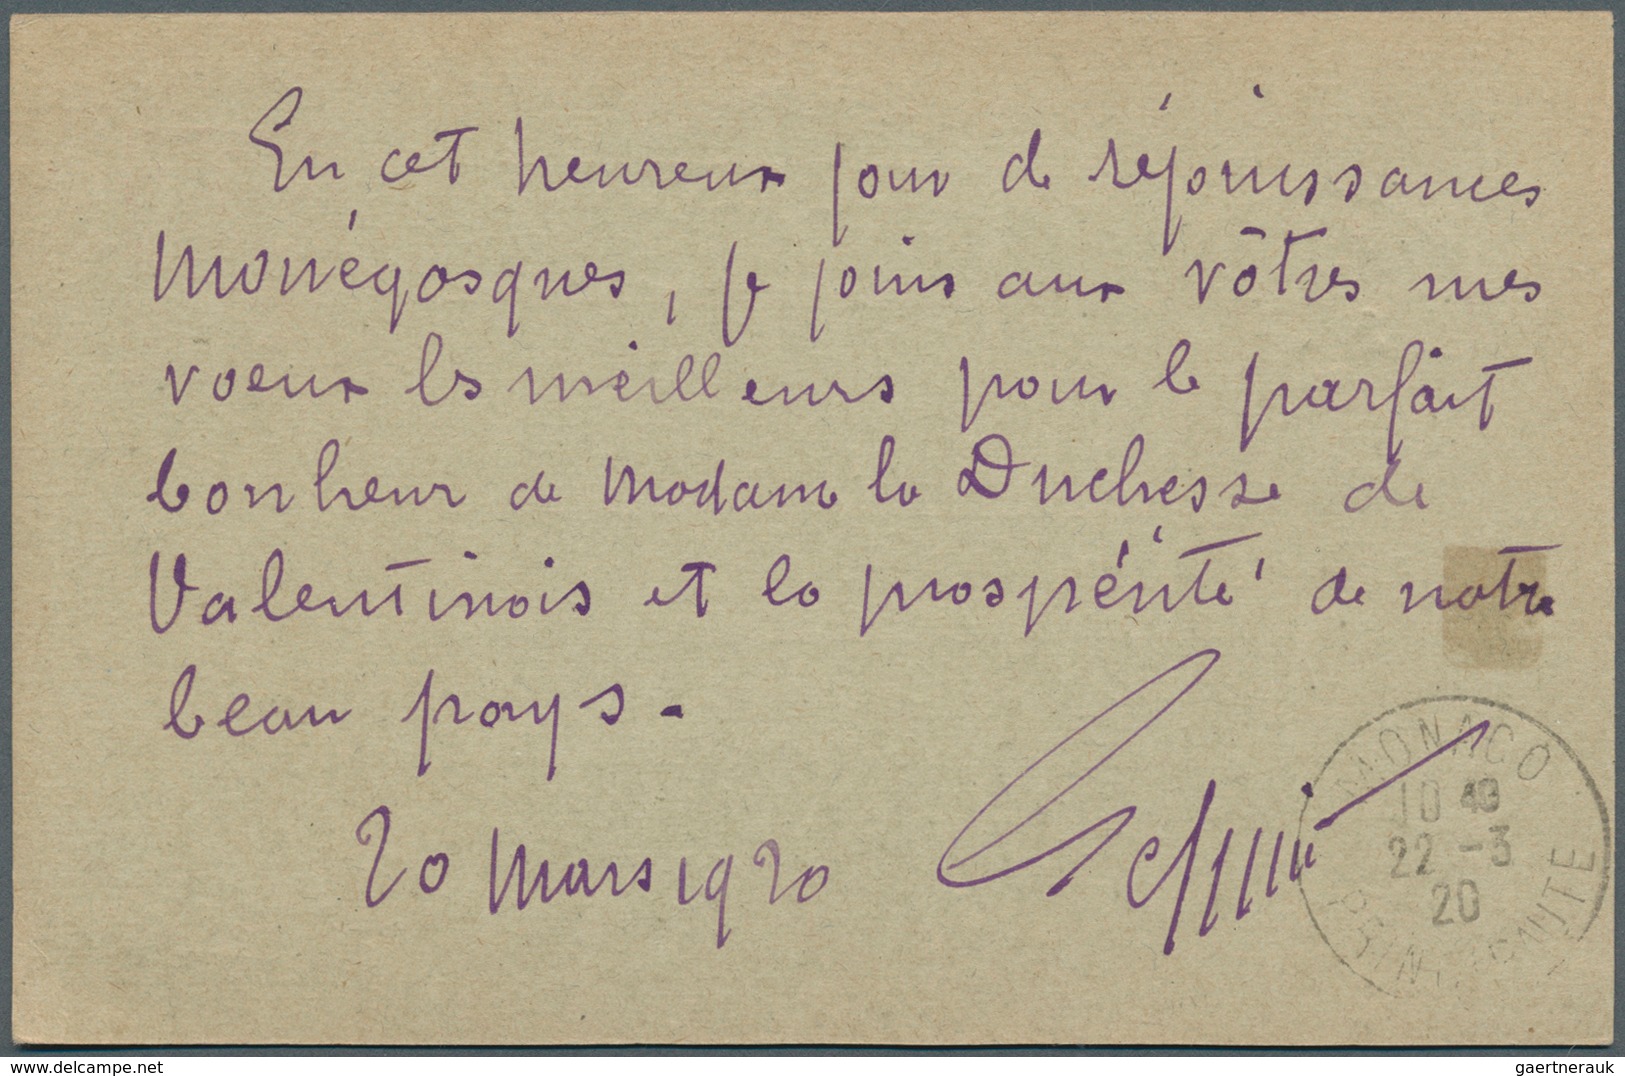 En cet heureux jour de réjouissances
Monégasques, je joins aux vôtres mes
voeux les meilleurs pour le parfait
bonheur de Madame la Duchesse de
Valentinois et la prospérité de notre
beau pays.
20 Mars 1920
MONACO
10 40
22 -3
20
www.delcampe.net
gaertnerauk